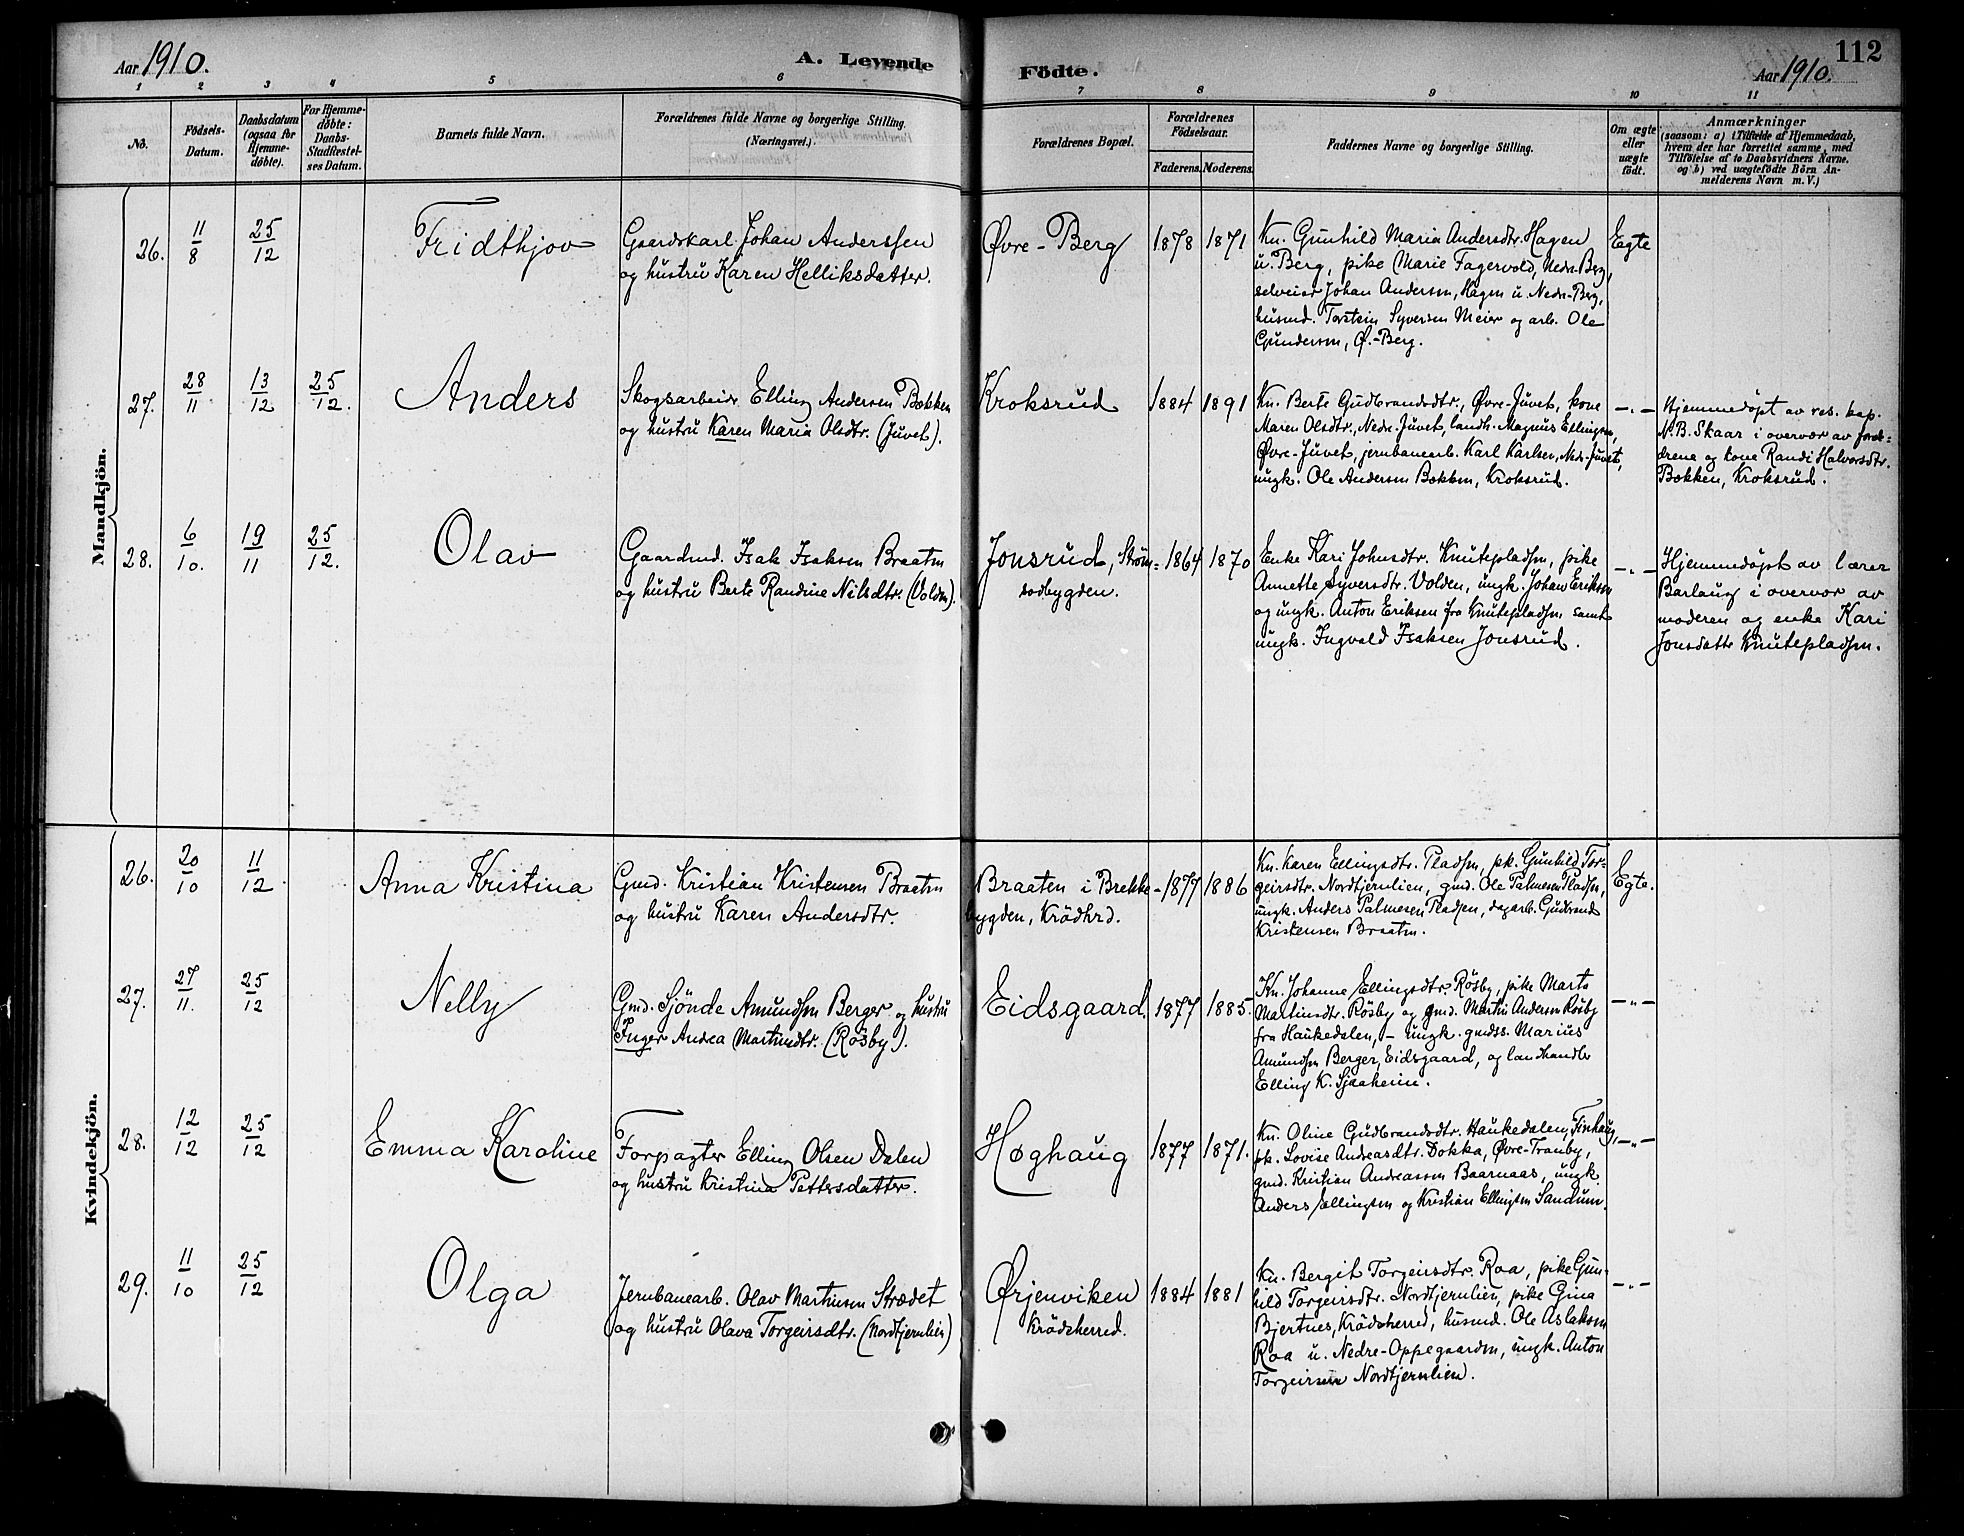 Aar 1910.
A. Levende
Födte.
112
Aar 1910.
1 2 3 4 5 6 7 8 9 10 11
No.
Födsels-
Datum.
Daabsdatum
(ogsaa for
Hjemme-
døbte).
For Hjemme-
døbte:
Daabs-
Stadfæstel-
ses Datum.
Barnets fulde Navn.
Forældrenes fulde Navne og borgerlige Stilling.
(Næringsvei.)
Forældrenes Bopæl.
Forældrenes
Födselsaar.
Faderens. Moderens.
Faddernes Navne og borgerlige Stilling.
Om ægte
eller
uægte
født.
Anmærkninger
(saasom: a) i Tilfælde af Hjemmedaab,
hvem der har forrettet samme, med
Tilføielse af to Daabsvidners Navne,
og b) ved uægtefödte Börn An-
melderens Navn m. V.)
Mandkjön.
26.
11/8
25/12
Fridthjov
Gaardskarl Johan Anderssen
og hustru Karen Helliksdatter.
Øvre-Berg
1878 1871
Kn. Gunhild Maria Andersdtr. Hagen
u. Berg, pike Marie Fagervold, Nedr. Berg,
selveier Johan Andersen, Hagen u. Nedr-Berg,
husmd. Torstein Syversen Meier og arb. Ole
Gundersen, Ø.-Berg.
Egte
27.
28/11
13/12
25/12.
Anders
Skogsarbeider Elling Andersen Bakken
og hustru Karen Maria Olsdtr. (Juvet).
Kroksrud
1884 1891
Kn. Berte Gudbrandsdtr., Øvre-Juvet, kone
Maren Olsdtr., Nedr. Juvet, landh. Magnus Ellingsen,
Øvre-Juvet, jernbanearb. Karl Karlsen, Ned.-Juvet,
ungk. Ole Andersen Bakken, Kroksrud.
-"-
Hjemmedøpt av res. kap.
N. B. Skaar i overvær av foræl=
drene og kone Randi Halvorsdtr.
Bakken, Kroksrud.
28.
6/10.
19/11
25/12.
Olav
Gaardmd. Isak Isaksen Braaten
og hustru Berte Randine Nilsdtr. (Volden).
Jonsrud, Strøm=
sodbygden.
1864 1870
Enke Kari Johnsdtr. Knutepladsen, pike
Annette Syversdtr. Volden, ungk. Johan Eriksen
og ungk. Anton Eriksen fra Knutepladsen samt
ungk. Ingvald Isaksen Jonsrud.
-"-
Hjemmedøpt av lærer
Barlaug i overvær av
moderen og enke Kari
Jonsdatter Knutepladsen.
Kvindekjön.
26.
20/10
11/12.
Anna Kristina
Gmd. Kristian Kristensen Braaten
og hustru Karen Andersdtr.
Braaten i Brekke-
bygden, Krödhrd.
1877 1886
Kn. Karen Ellingsdtr. Pladsen, pk. Gunhild Tor=
geirsdtr. Nordtjernlien, gmd. Ole Palmesen Pladsen,
ungk. Anders Palmesen Pladsen, dagarb. Gudbrand
Kristensen Braaten.
Egte.
27.
27/11.
25/12
Nelly
Gmd. Sjönde Amundsen Berger og hustru
Inger Andrea Martinsdtr. (Rösby).
Eidsgaard.
1877 1885.
Kn. Johanne Ellingsdtr. Rösby, pike Marta
Martinsdtr. Rösby og gmd. Martin Andersen Rösby
fra Haukedalen, - ungk. gmdss. Marius
Amundsen Berger, Eidsgaard, og landhandler
Elling K. Sjaaheim.
-"-
28.
12/12
25/12
Emma Karoline
Forpagter Elling Olsen Dalen
og hustru Kristina Pettersdatter.
Høghaug
1877 1871.
Kn. Oline Gudbrandsdtr. Haukedalen, Finhaug,
pk. Lovise Andreasdtr. Dokka, Øvre-Tranby,
gmd. Kristian Andreassen Baarnaas, ungk.
Anders Ellingsen og Kristian Ellingsen Sandum.
-"-
29.
11/10
25/12
Olga
Jernbanearb. Olav Martinsen Strædet
og hustru Olava Torgeirsdtr. (Nordtjernlien)
Ørjenviken
Krödsherred.
1884 1881
Kn. Bergit Torgeirsdtr. Roa, pike Gun-
hild Torgeirsdtr. Nordtjernlien, pike Gina
Bjertnes, Krödsherred, husmd. Ole Aslaksen
Roa u. Nedre-Oppegaarden, ungk. Anton
Torgeirsen Nordtjernlien.
-"-